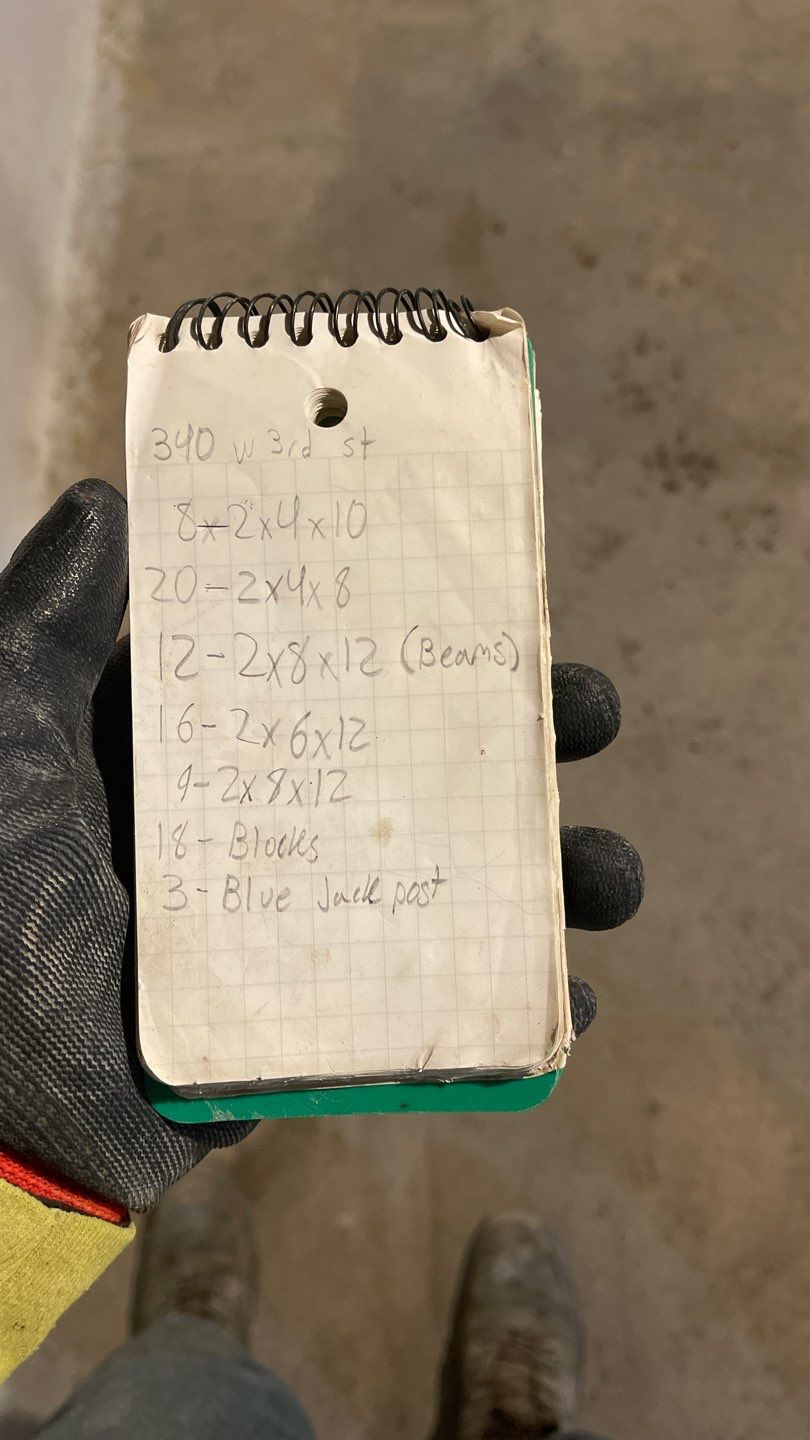 340 w 3rd st
8-2x4x10
20-2x4x8
12-2x8x12 (Beams)
16-2x6x12
9-2x8x12
18-Blocks
3-Blue Jack post